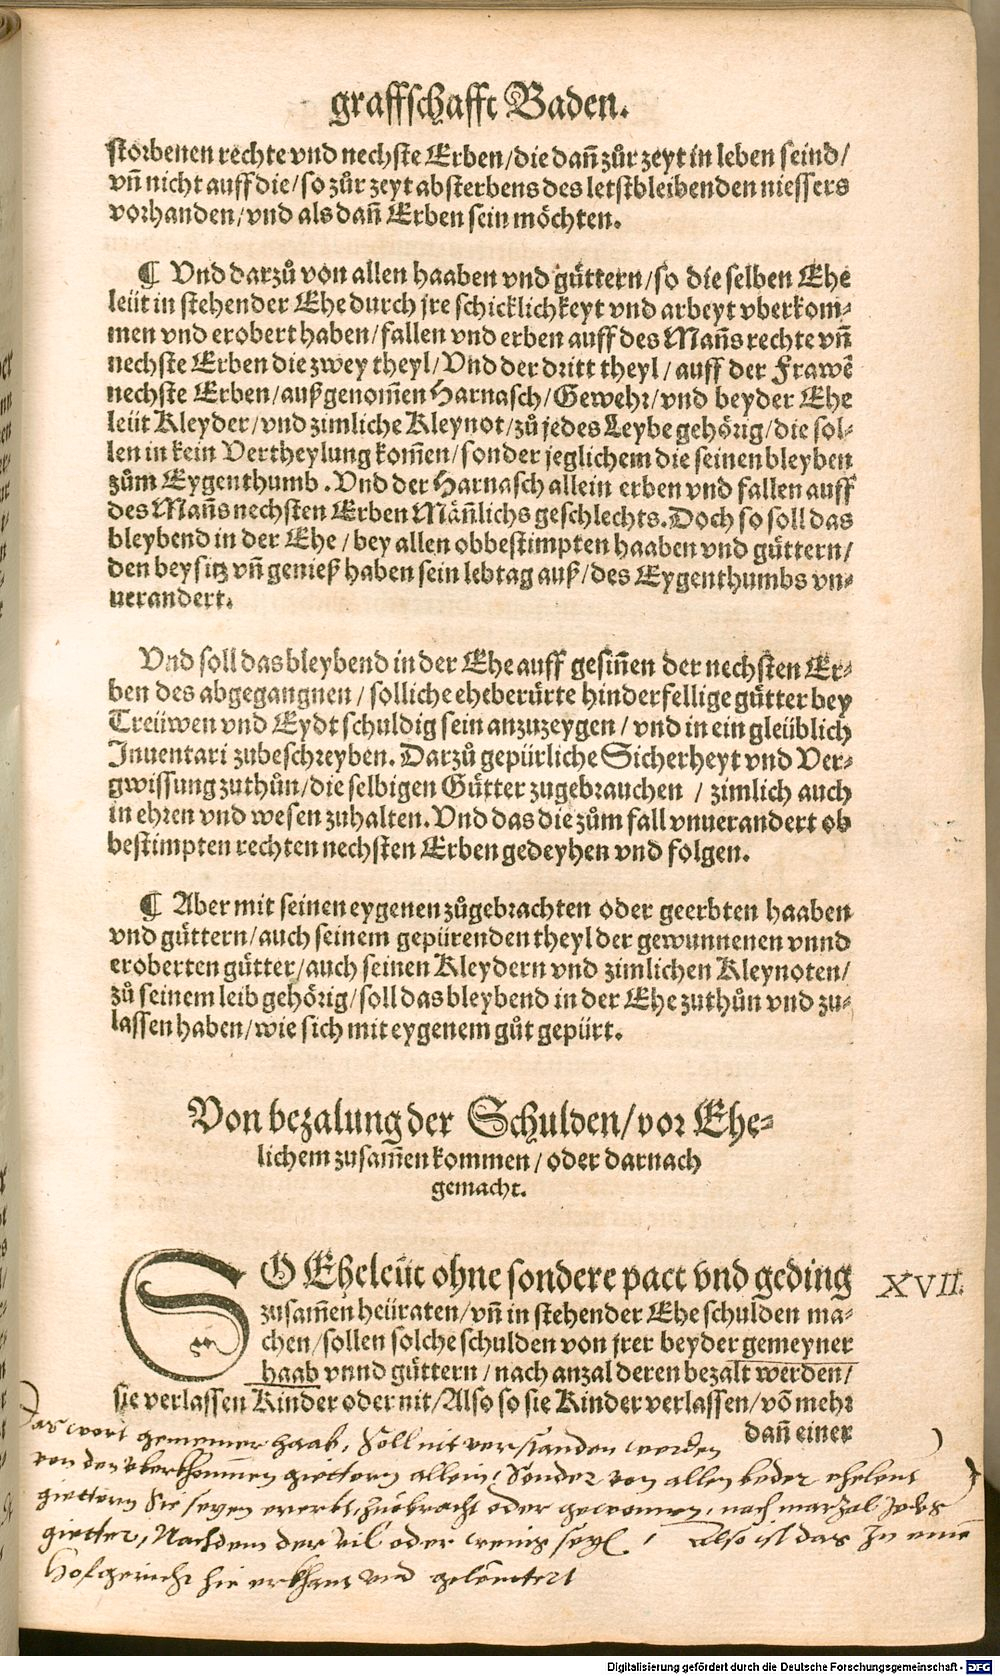 graffschafft Baden.
storbenen rechte vnd nechste Erben/die dañ zůr zeyt in leben seind/
vñ nicht auff die/so zůr zeyt absterbens des letstbleibenden niessers
vorhanden/vnd als dañ Erben sein möchten.
¶ Vnd darzů von allen haaben vnd güttern/so die selben Ehe
leüt in stehender Ehe durch jre schicklichkeyt vnd arbeyt vberkom-
men vnd erobert haben/fallen vnd erben auff des Mañs rechte vñ
nechste Erben die zwey theyl/Vnd der dritt theyl/auff der Frawẽ
nechste Erben/außgenom̃en Harnasch/Gewehr/vnd beyder Ehe
leüt Kleyder/vnd zimliche Kleynot/zů jedes Leybe gehörig/die sol-
len in kein Vertheylung kom̃en/sonder jeglichem die seinen bleyben
zům Eygenthumb. Vnd der Harnasch allein erben vnd fallen auff
des Mañs nechsten Erben Mäñlichs geschlechts. Doch so soll das
bleybend in der Ehe/bey allen obbestimpten haaben vnd güttern/
den beysitz vñ genieß haben sein lebtag auß/des Eygenthumbs vn-
uerandert.
Vnd soll das bleybend in der Ehe auff gesiñen der nechsten Er-
ben des abgegangnen/solliche eheberürte hinderfellige gütter bey
Treüwen vnd Eydt schuldig sein anzuzeygen/vnd in ein gleüblich
Inuentari zubeschreyben. Darzů gepürliche Sicherheyt vnd Ver-
gwissung zuthůn/die selbigen Gütter zugebrauchen/zimlich auch
in ehren vnd wesen zuhalten. Vnd das die zům fall vnuerandert ob
bestimpten rechten nechsten Erben gedeyhen vnd folgen.
¶ Aber mit seinen eygenen zůgebrachten oder geerbten haaben
vnd güttern/auch seinem gepürenden theyl der gewunnenen vnnd
eroberten gütter/auch seinen Kleydern vnd zimlichen Kleynoten/
zů seinem leib gehörig/soll das bleybend in der Ehe zuthůn vnd zu-
lassen haben/wie sich mit eygenem gůt gepürt.
Von bezalung der Schulden/vor Ehe-
lichem zusam̃en kommen/oder darnach
gemacht.
SO Eheleüt ohne sondere pact vnd geding XVII.
zusam̃en heüraten/vñ in stehender Ehe schulden ma-
chen/sollen solche schulden von jrer beyder gemeyner
haab vnnd güttern/nach anzal deren bezalt werden/
sie verlassen Kinder oder nit/Also so sie Kinder verlassen/võ mehr
dañ einer
Das wort gemeiner haab, Soll nit verstanden werden
von den vberkhom̃en giettern allein, Sonder von allen beder eheleut
giettern Sie seyen ererbt, zuobracht oder gewonnen, nach marzal Jedes
gietter, Nachdem der vil oder wenig seyn, Also ist das In eine
Hofgericht hie erkhant vnd geleutert